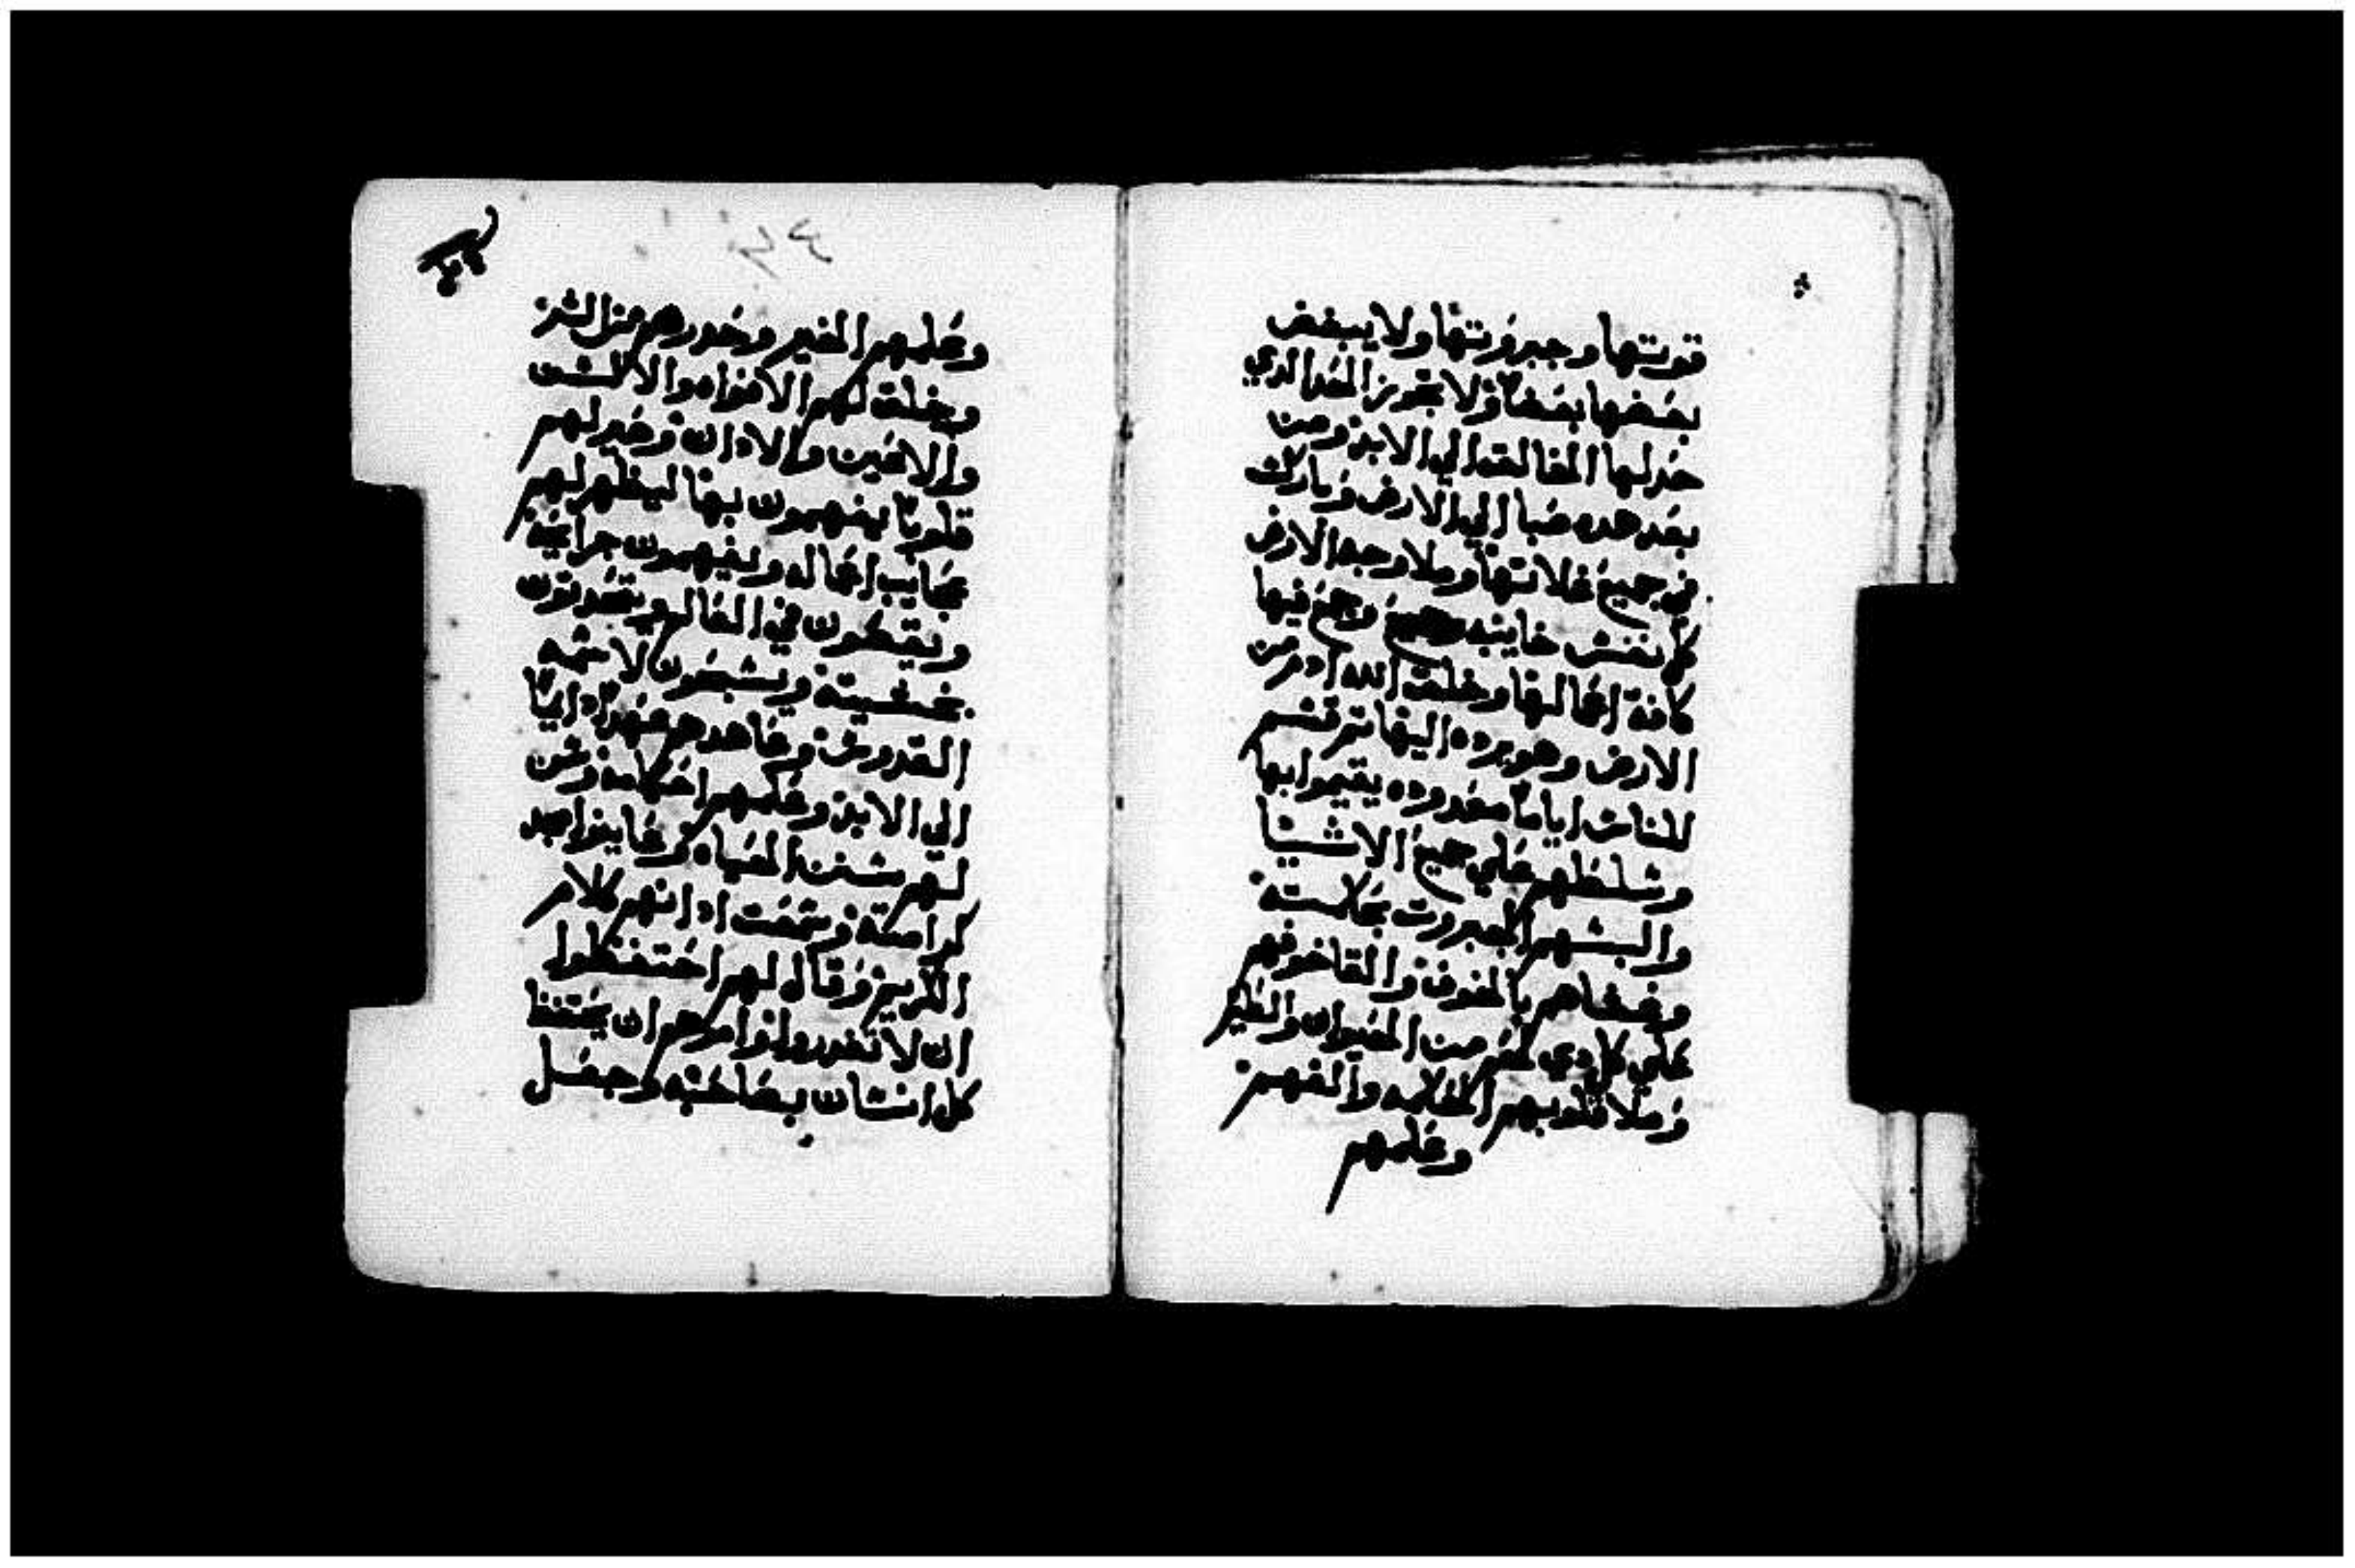 قوتها وجبروتها ولا يبغض
بعضها بعضا ولا تجوز الحد الدي
حد لها الخالق الي الابد ومن
بعد هده ضبا الي الارض وبارك
في جميع غلاتها وملا وجه الارض
كل نفس حاييه وجمع فيها
كافة اعمالها وخلق الله ادم من
الارض وهو يرده اليها ثم قسم
للناس اياما معدوده يقيموا بها
وسلطهم علي جميع الاشيا
والبسهم الجبروت بحكمته
وغشاهم بالخوف والقا خوفهم
علي كل دي لحم من الحيوان والطير
وملا قلوبهم الحكمه والفهم
وعلمهم
وعلمهم الخير وحدرهم من الشر
وخلق لهم الافواه والالسن
والاعين والادان وخير لهم
قلوبا يفهمون بها ليظهر لهم
عجايب اعماله ويفهمون جرايحه
ويقيمون في العالم يتحدتون
بخشيته ويسبحون لاسمه
القدوس وعاهدهم عهدا دايما
الي الابد وعلمهم احكامه وسن
لهم سنن الحياه وعاينوا مجد
كرامته وسمعت ادانهم كلام
الكريم وقال لهم احتفظوا
ان لا تغدروا وامرهم ان يحتفظ
كل انسان بصاحبه وجعل